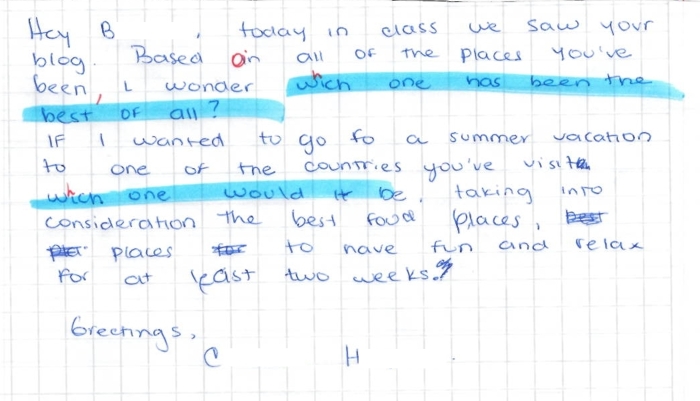 Hey B , today in class we saw your
blog. Based on all of the places you've
been, I wonder which one has been the
best of all?
If I wanted to go to a summer vacation
to one of the countries you've visite
which one would it be, taking into
consideration the best food places,
places to have fun and relax
for at least two weeks?
Greetings,
C H